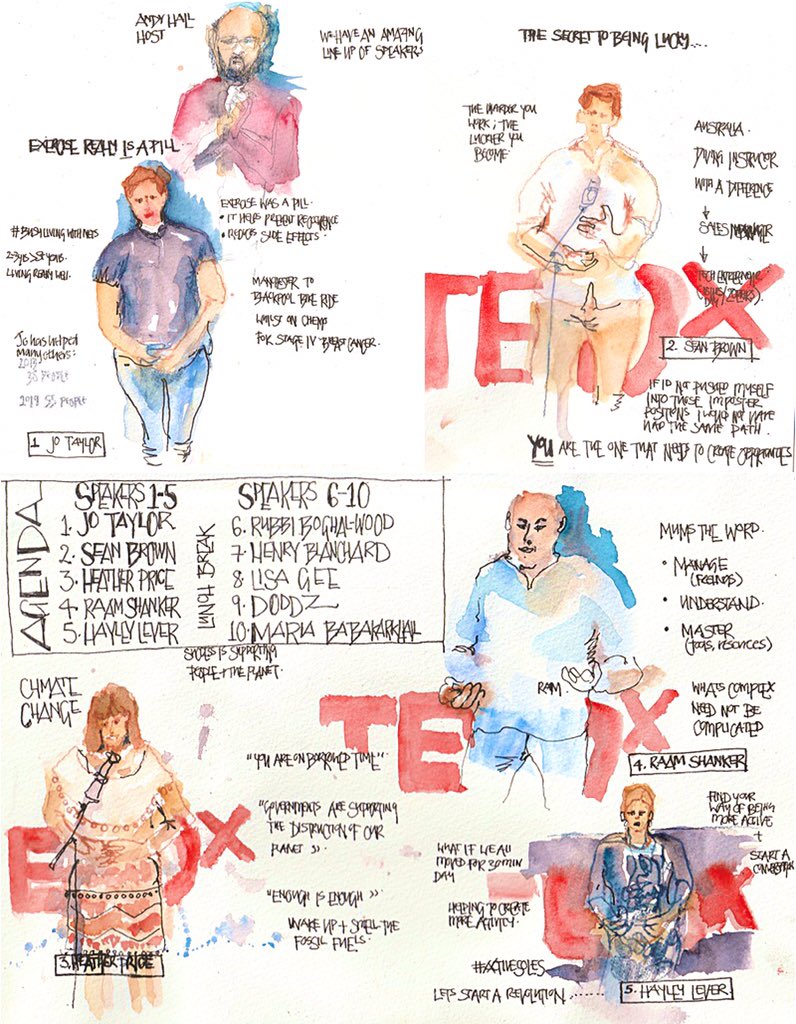 ANDY HALL
HOST
WE HAVE AN AMAZING
LINE UP OF SPEAKERS
EXERCISE REALLY IS A PILL
EXERCISE WAS A PILL.
• IT HELPS PREVENT RECURRENCE
• REDUCES SIDE EFFECTS.
LIVING REALLY WELL.
MANCHESTER TO
BLACKPOOL BIKE RIDE
WHILST ON CHEMO
FOR STAGE IV BREAST CANCER.
Jo has helped
many others:
PEOPLE
2019 55 PEOPLE
1 JO TAYLOR
THE SECRET TO BEING LUCKY....
THE HARDER YOU
WORK; THE
LUCKIER YOU
BECOME
AUSTRALIA.
DIVING INSTRUCTOR
WITH A DIFFERENCE
↓
SALES MANAGER
↓
TEDX
2. SEAN BROWN
IF ID NOT PUSHED MYSELF
INTO THESE IMPOSTER
POSITIONS I WOULD NOT HAVE
HAD THE SAME PATH.
YOU ARE THE ONE THAT NEEDS TO CREATE OPPORTUNITIES
AGENDA
SPEAKERS 1-5
1. JO TAYLOR
2. SEAN BROWN
3. HEATHER PRICE
4. RAAM SHANKER
5. HAYLEY LEVER
LUNCH BREAK
SPEAKERS 6-10
6. RUBBI BOGHAL-WOOD
7. HENRY BLANCHARD
8. LISA GEE
9. DODDZ
10. MARIA BABAKARKHAIL
SUCCESS IS SUPPORTING
PEOPLE + THE PLANET.
CLIMATE
CHANGE
"YOU ARE ON BORROWED TIME"
"GOVERNMENTS ARE SUPPORTING
THE DISTRUCTION OF OUR
PLANET"
"ENOUGH IS ENOUGH"
WAKE UP + SMELL THE
FOSSIL FUELS.
EDX
3. HEATHER PRICE
MUMS THE WORD.
• MANAGE
(FEELINGS)
• UNDERSTAND.
• MASTER
(TOOLS, RESOURCES)
RAM.
WHATS COMPLEX
NEED NOT BE
COMPLICATED
TEDX
4. RAAM SHANKER
FIND YOUR
WAY OF BEING
MORE ACTIVE
+
START A
CONVERSATION
WHAT IF WE ALL
MOVED FOR 30MIN
DAY
HELPING TO CREATE
MORE ACTIVITY.
#ACTIVESOLES
LETS START A REVOLUTION........
5. HAYLEY LEVER